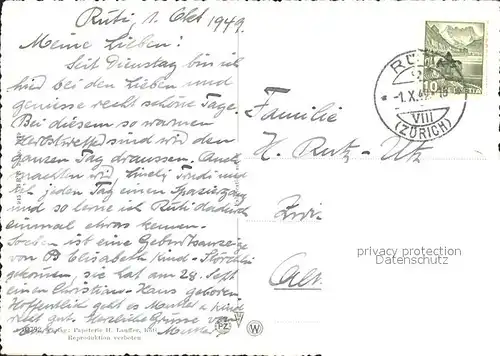 Rüti, 1. Okt 1949.
Meine Lieben!
Seit Dienstag bin ich
hier bei den Lieben und
geniesse recht schöne Tage.
Bei diesem so warmen
Herbstwetter sind wir den
ganzen Tag draussen. Auch
machten wir, Fredi und
ich jeden Tag einen Spaziergang
und so lerne ich Rüti dadurch
einmal etwas kennen.
Soeben ist eine Geburtsanzeige
von Elisabeth Kind-
gekommen, sie hat am 28. Sept.
einen Christian-Hans geboren.
Hoffentlich geht es Mutter & Kind
recht gut. Herzliche Grüsse von
Verlag: Papeterie H. Laufer, Rüti
Reproduktion verboten
PZ
W
RÜ
-1.X.49
VIII
(ZÜRICH)
Familie
H. Rutz-Utz
privacy protection
Datenschutz